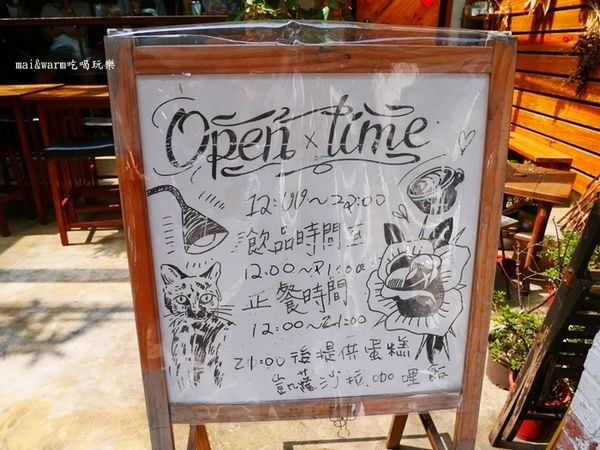 mai&warm吃喝玩樂
Open x time
12:00~22:00
飲品時間至
12:00~21:00
正餐時間
12:00~21:00
21:00後提供蛋糕
凱薩沙拉.咖哩飯